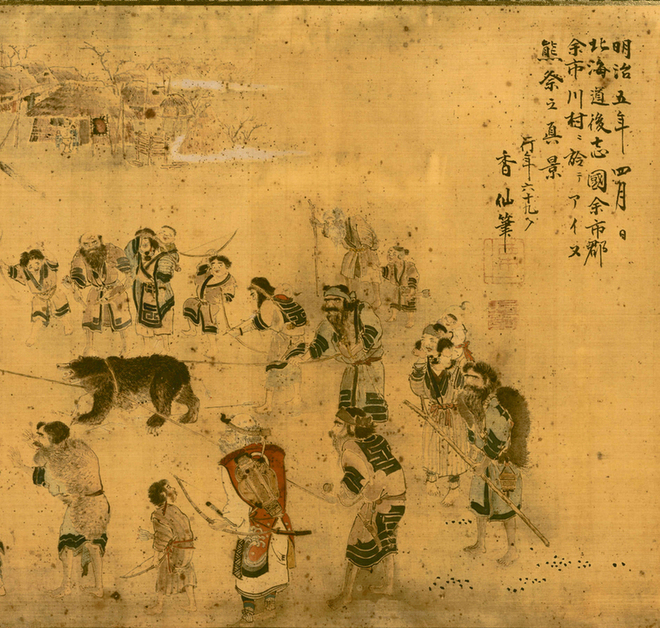 明治五年四月日
北海道後志國余市郡
余市川村ニ於テアイヌ
熊祭之真景
行年六十九才
香仙筆